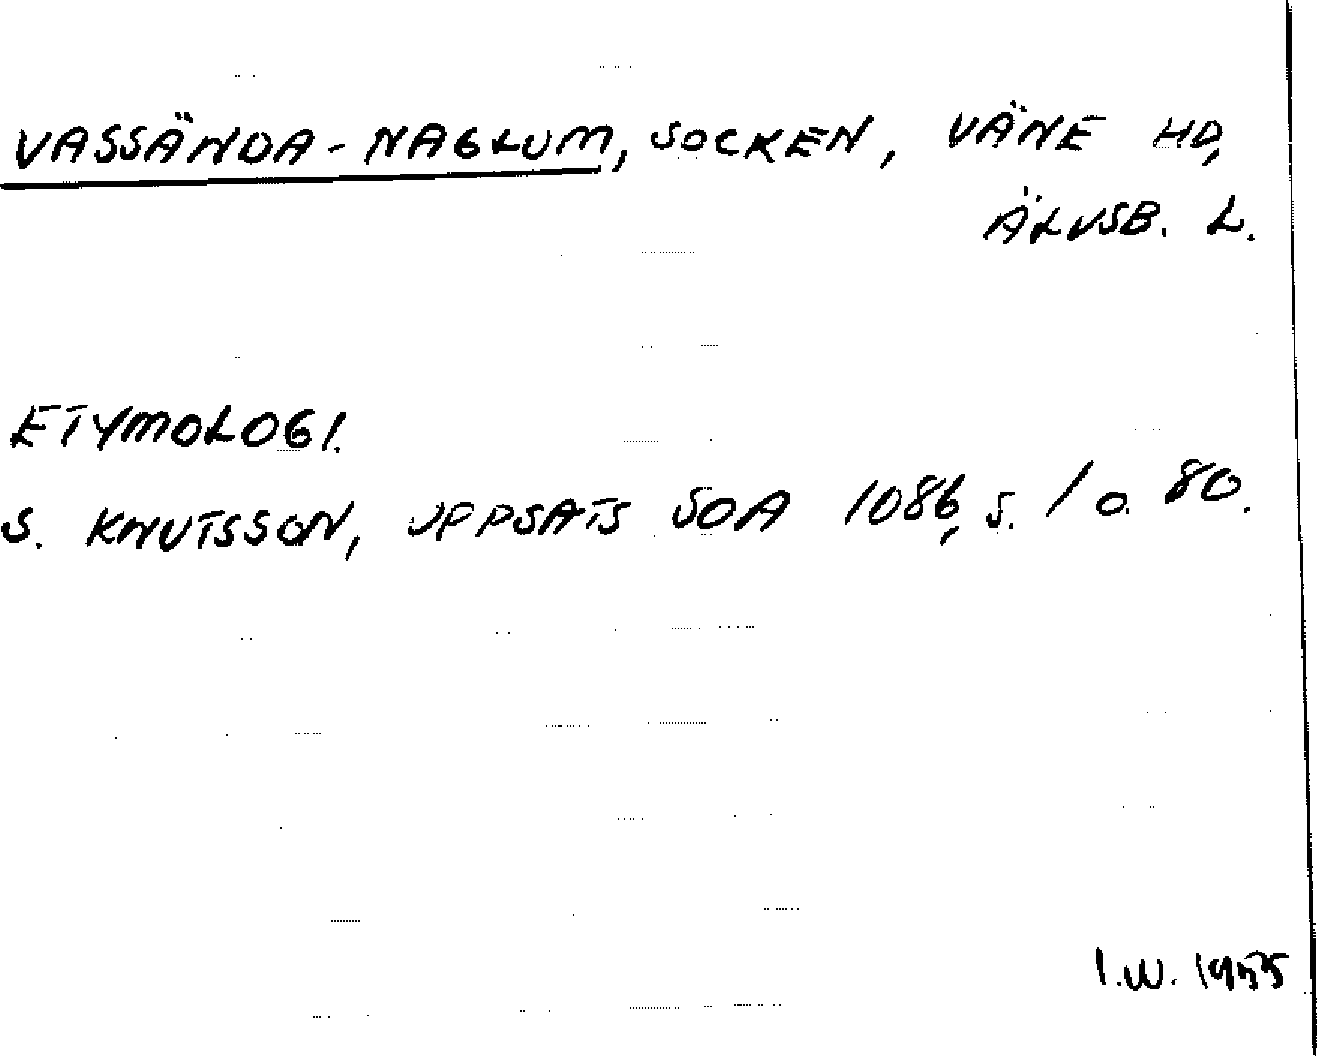 VASSÄNDA-NAGLUM, SOCKEN, VÄNE HD,
ÄLVSB. L.
ETYMOLOGI.
S. KNUTSSON, UPPSATS SOA 1086, S. 1 O. 80.
I.W. 1955